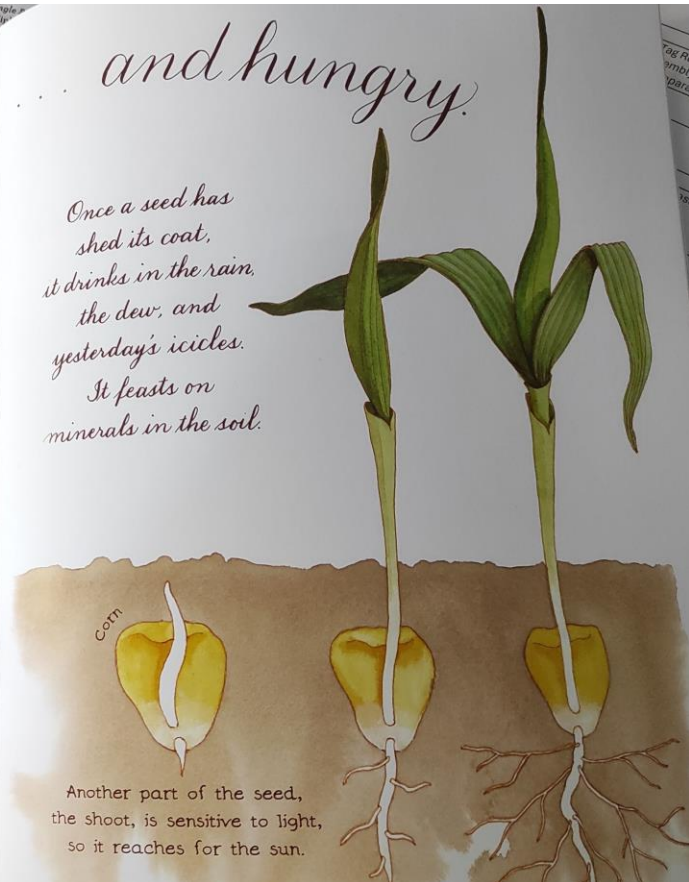 . . . and hungry.
Once a seed has
shed its coat,
it drinks in the rain,
the dew, and
yesterday's icicles.
It feasts on
minerals in the soil.
Corn
Another part of the seed,
the shoot, is sensitive to light,
so it reaches for the sun.